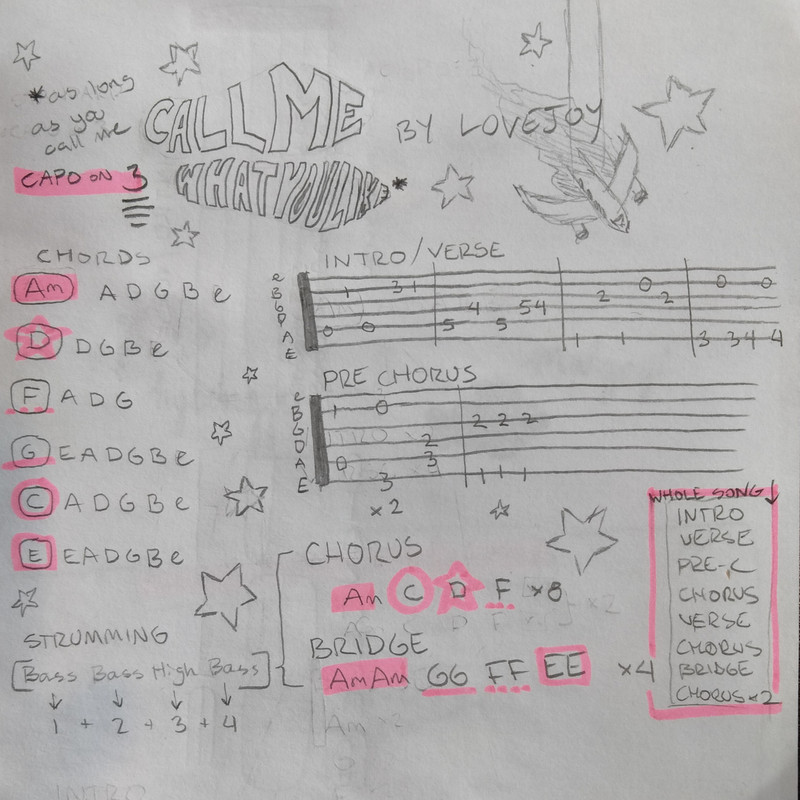 *as long
as you
call me
CALL ME
WHAT YOU LIKE*
BY LOVEJOY
CAPO ON 3
CHORDS
Am A D G B e
D D G B e
F A D G
G E A D G B e
C A D G B e
E E A D G B e
STRUMMING
[Bass Bass High Bass]
1 + 2 + 3 + 4
INTRO/VERSE
e
B 1 31 0 0 0
G 2 2
D 4 54
A 0 0 5 5
E 1 1 3 34 4
PRE CHORUS
e
B 1 0
G 2 2 2
D 2
A 0 3
E 3 1 1 1
x2
CHORUS
Am C D F x8
BRIDGE
AmAm GG FF EE x4
WHOLE SONG
INTRO
VERSE
PRE-C
CHORUS
VERSE
CHORUS
BRIDGE
CHORUS x2
INTRO